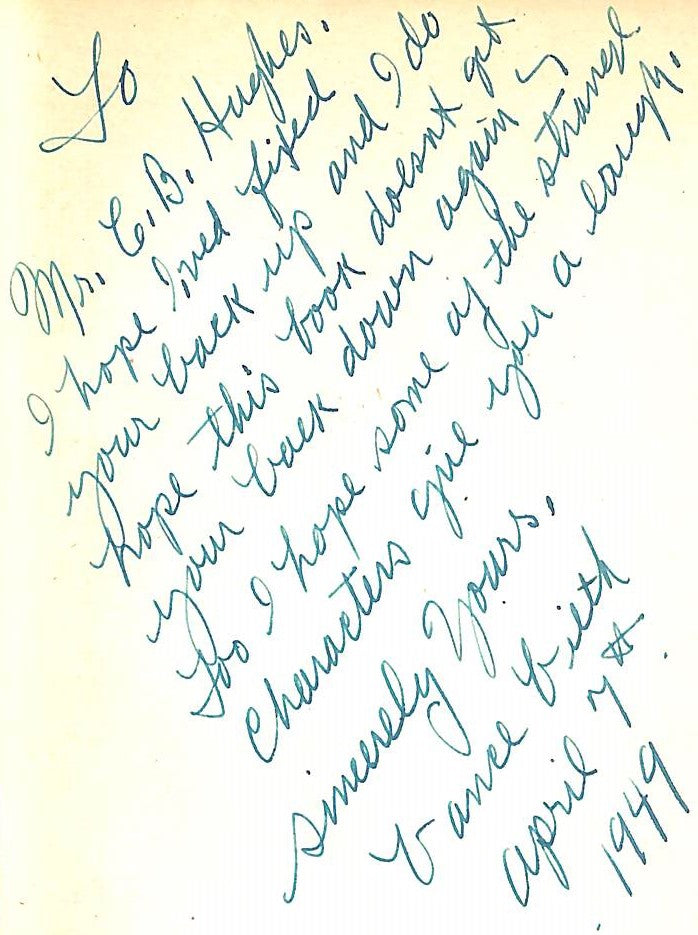 To
Mr. C.B. Hughes.
I hope I,ved fixed
your back up and I do
hope this book doesnt get
your back down again
Too I hope some of the strange
characters give you a laugh.
sincerely Yours.
Vance Vieth
April 7th.
1949